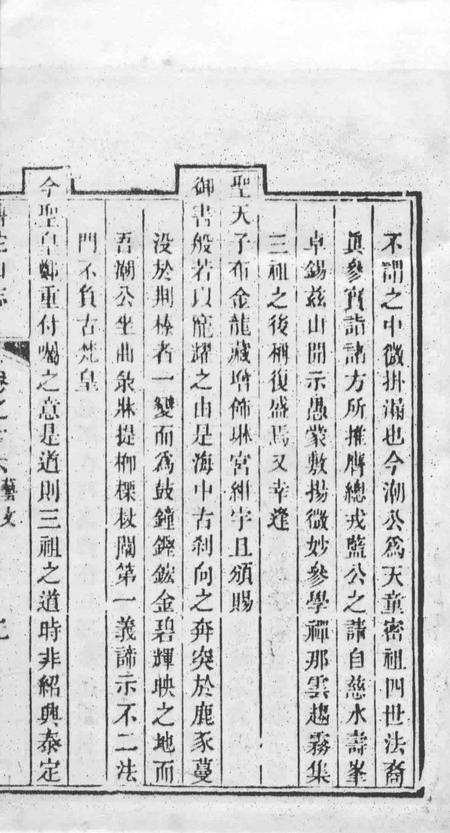 不謂之中微掛漏也今潮公爲天童密祖四世法裔
眞參實詣諸方所推膺總戎藍公之請自慈水壽峯
卓錫兹山開示愚蒙敷揚微妙參學禪那雲趨霧集
三祖之後稱復盛焉又幸逢
聖天子布金龍藏增飾琳宮紺宇且頒賜
御書般若以寵耀之由是海中古刹向之奔突於鹿豕蔓
没於荆榛者一變而爲鼓鐘鏗鋐金碧輝映之地而
吾潮公坐曲彔牀提楖𣗖杖闡第一義諦示不二法
門不負古梵皇
今聖皇鄭重付囑之意是道則三祖之道時非紹興泰定
山志 卷之 藝文